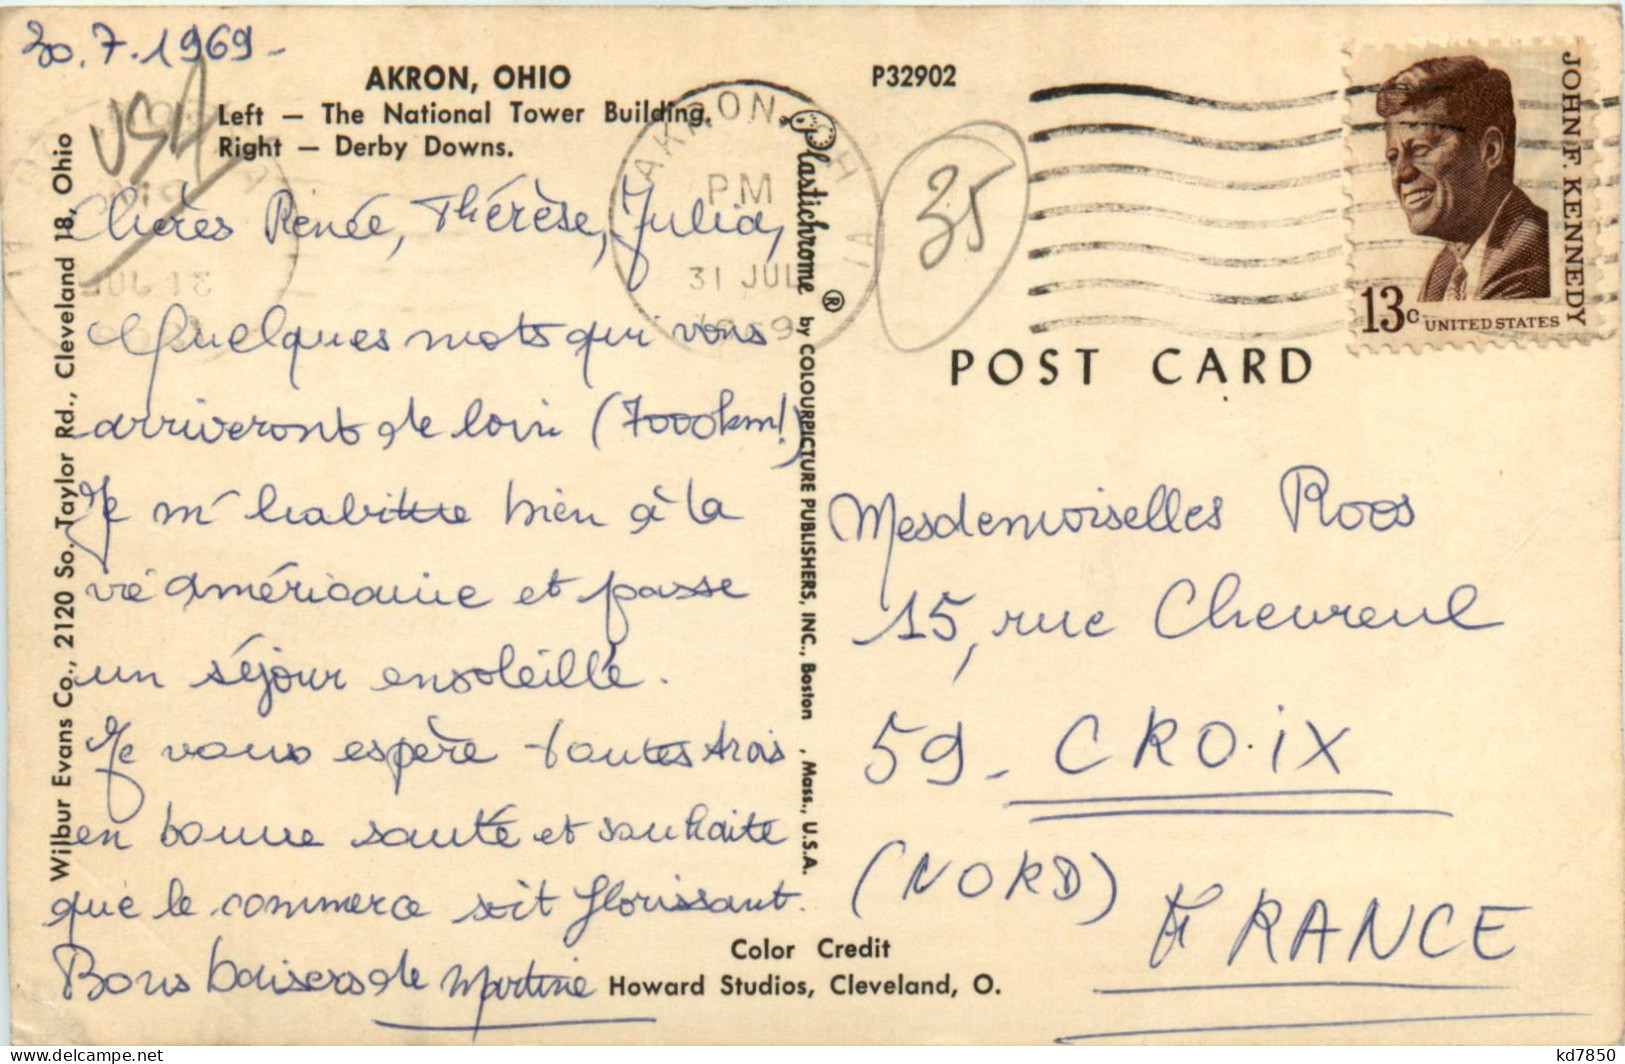 30.7.1969-
USA
AKRON, OHIO
Left — The National Tower Building.
Right — Derby Downs.
P32902
AKRON, OH
PM
31 JUL
1969
35
JOHN F. KENNEDY
13c UNITED STATES
POST CARD
Chères Renée, Thérèse, Julia,
Quelques mots qui vous
arriveront de loin (7000km!)
Je m'habitue bien à la
vie américaine et passe
un séjour ensoleillé.
Je vous espère toutes trois
en bonne santé et souhaite
que le commerce soit florissant.
Bons baisers de Martine
Mesdemoiselles Roos
15, rue Chevreul
59 - CROIX
(NORD)
FRANCE
Wilbur Evans Co., 2120 So. Taylor Rd., Cleveland 18, Ohio
Plastichrome ® by COLOURPICTURE PUBLISHERS, INC., Boston , Mass., U.S.A.
Color Credit
Howard Studios, Cleveland, O.
kd7850